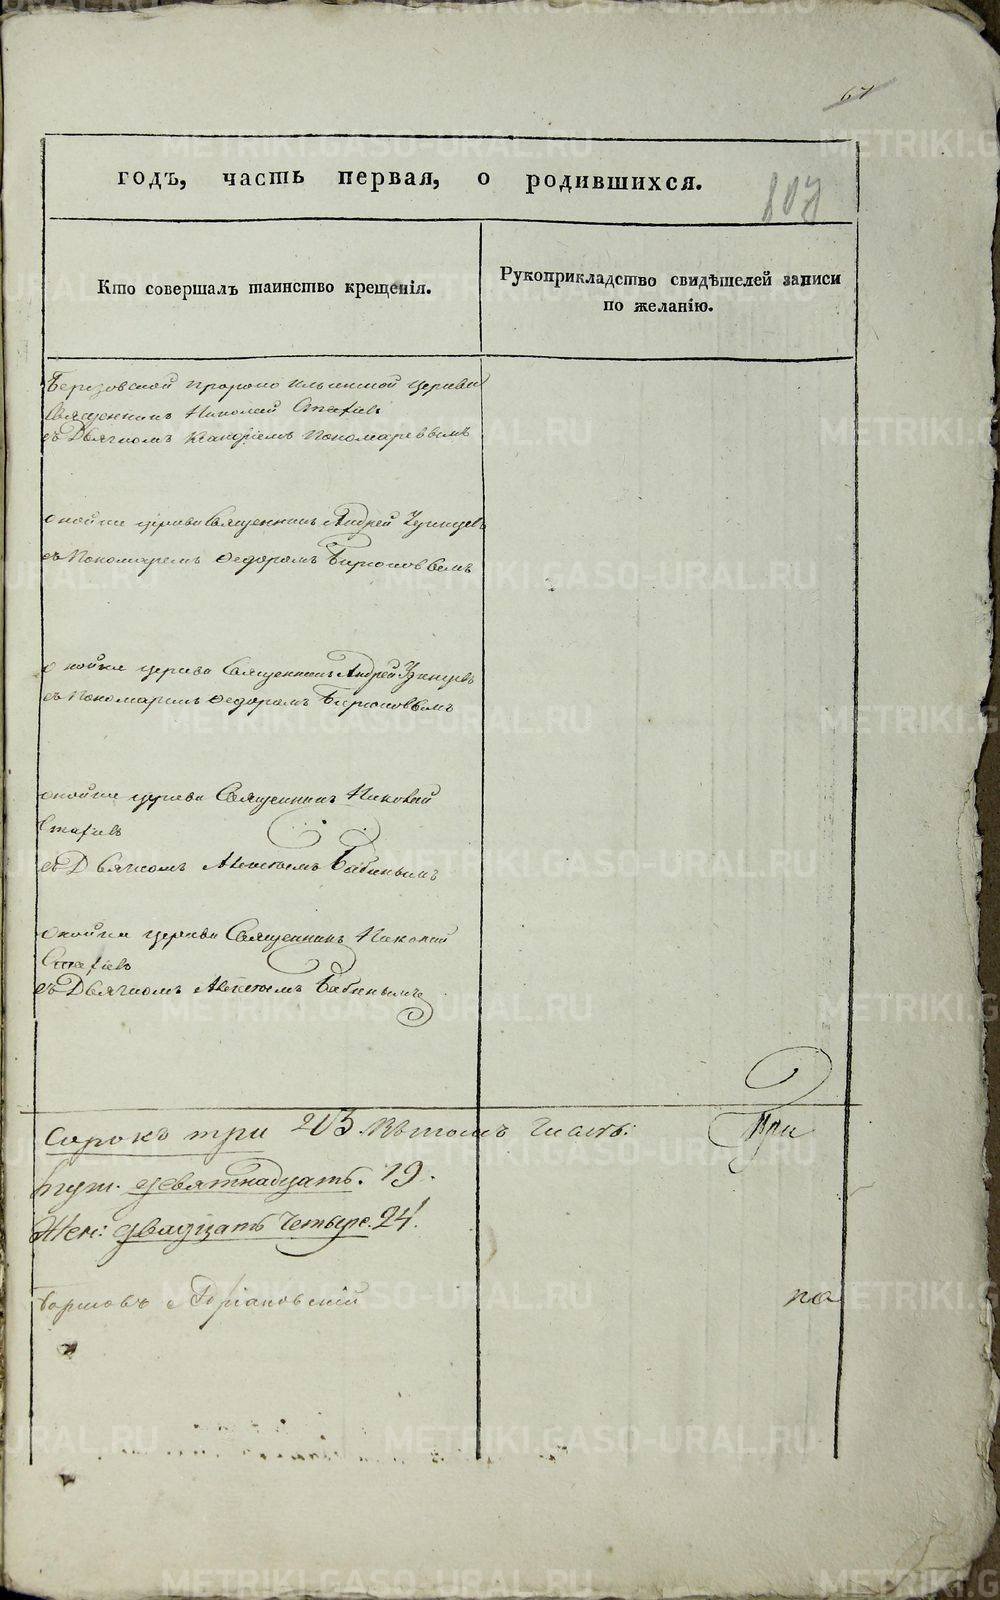 67
годъ, часть первая, о родившихся.
Кто совершалъ таинство крещенія.
Рукоприкладство свидѣтелей записи
по желанію.
Березовской пророко Ильинской церкви
Священникъ Николай
съ Дьячкомъ Пономаревымъ
онойже церкви Священникъ Андрей
съ Пономаремъ Федоромъ Бирюковымъ
онойже церкви Священникъ Андрей
съ Пономаремъ Федоромъ Бирюковымъ
онойже церкви Священникъ Николай
съ Дьячкомъ Алексѣемъ Бабинымъ
онойже церкви Священникъ Николай
съ Дьячкомъ Алексѣемъ Бабинымъ
Сорокъ три Въ томъ числѣ: При
Муж. девятнадцать. 19.
Жен: двадцать четыре. 24.
на
METRIKI.GASO-URAL.RU